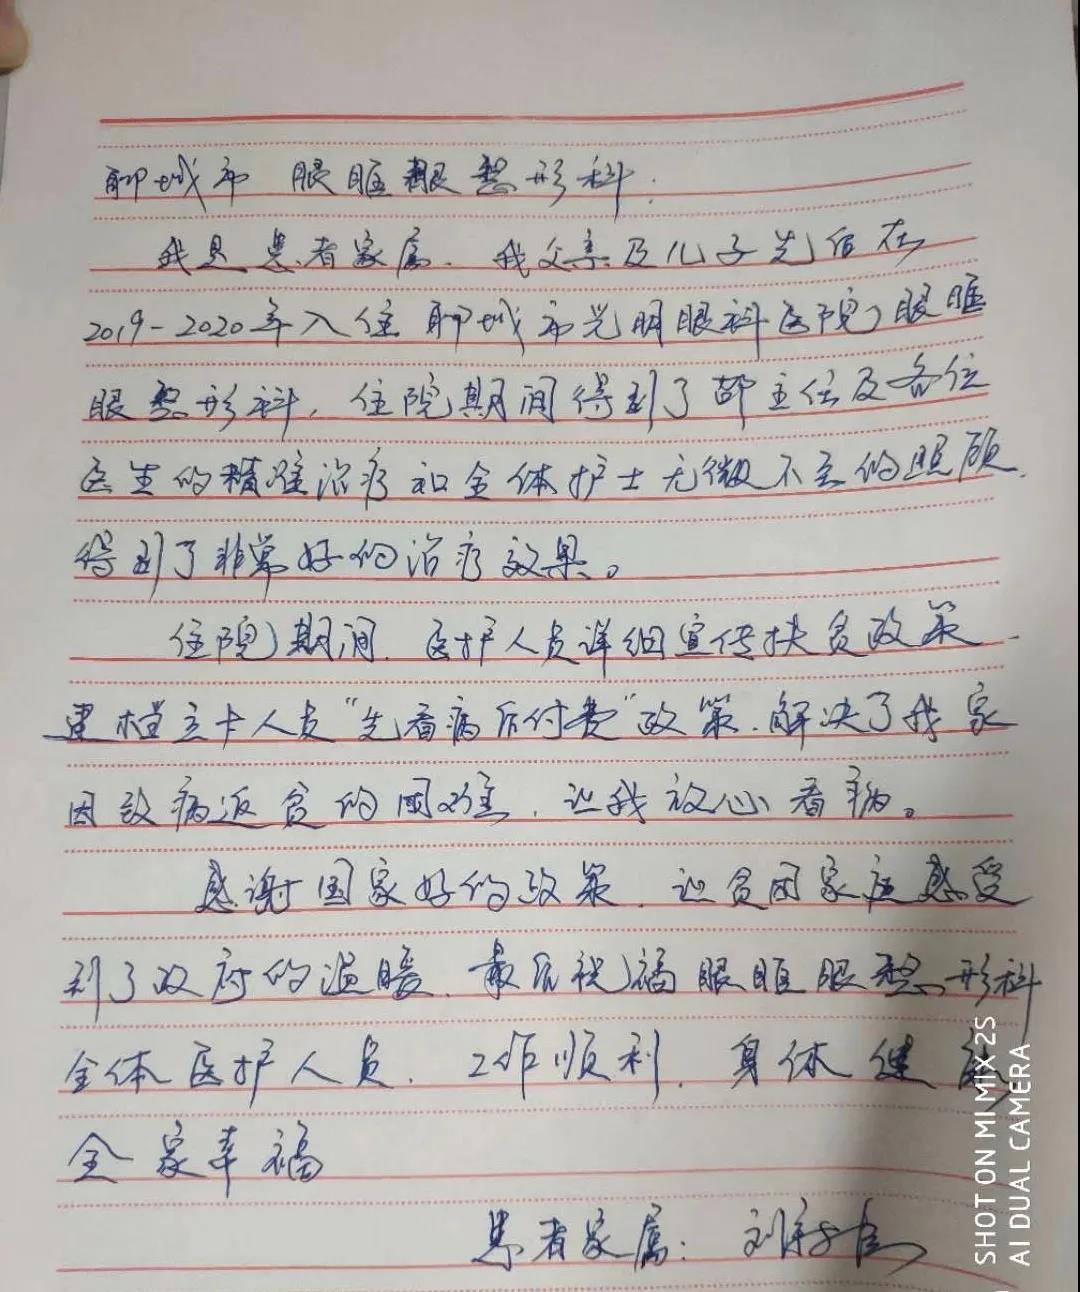 聊城市 眼眶眼整形科.
我是患者家属. 我父亲及儿子先后在
2019-2020年入住聊城市光明眼科医院眼眶
眼整形科, 住院期间得到了 主任及各位
医生的精准治疗和全体护士无微不至的照顾.
得到了非常好的治疗效果。
住院期间. 医护人员详细宣传扶贫政策
建档立卡人员“先看病后付费”政策.解决了我家
因致病返贫的困难, 让我放心看病。
感谢国家好的政策. 让贫困家庭感受
到了政府的温暖. 最后祝福眼眶眼整形科
全体医护人员. 工作顺利. 身体健康
全家幸福
患者家属: 刘
SHOT ON MI MIX 2S
AI DUAL CAMERA